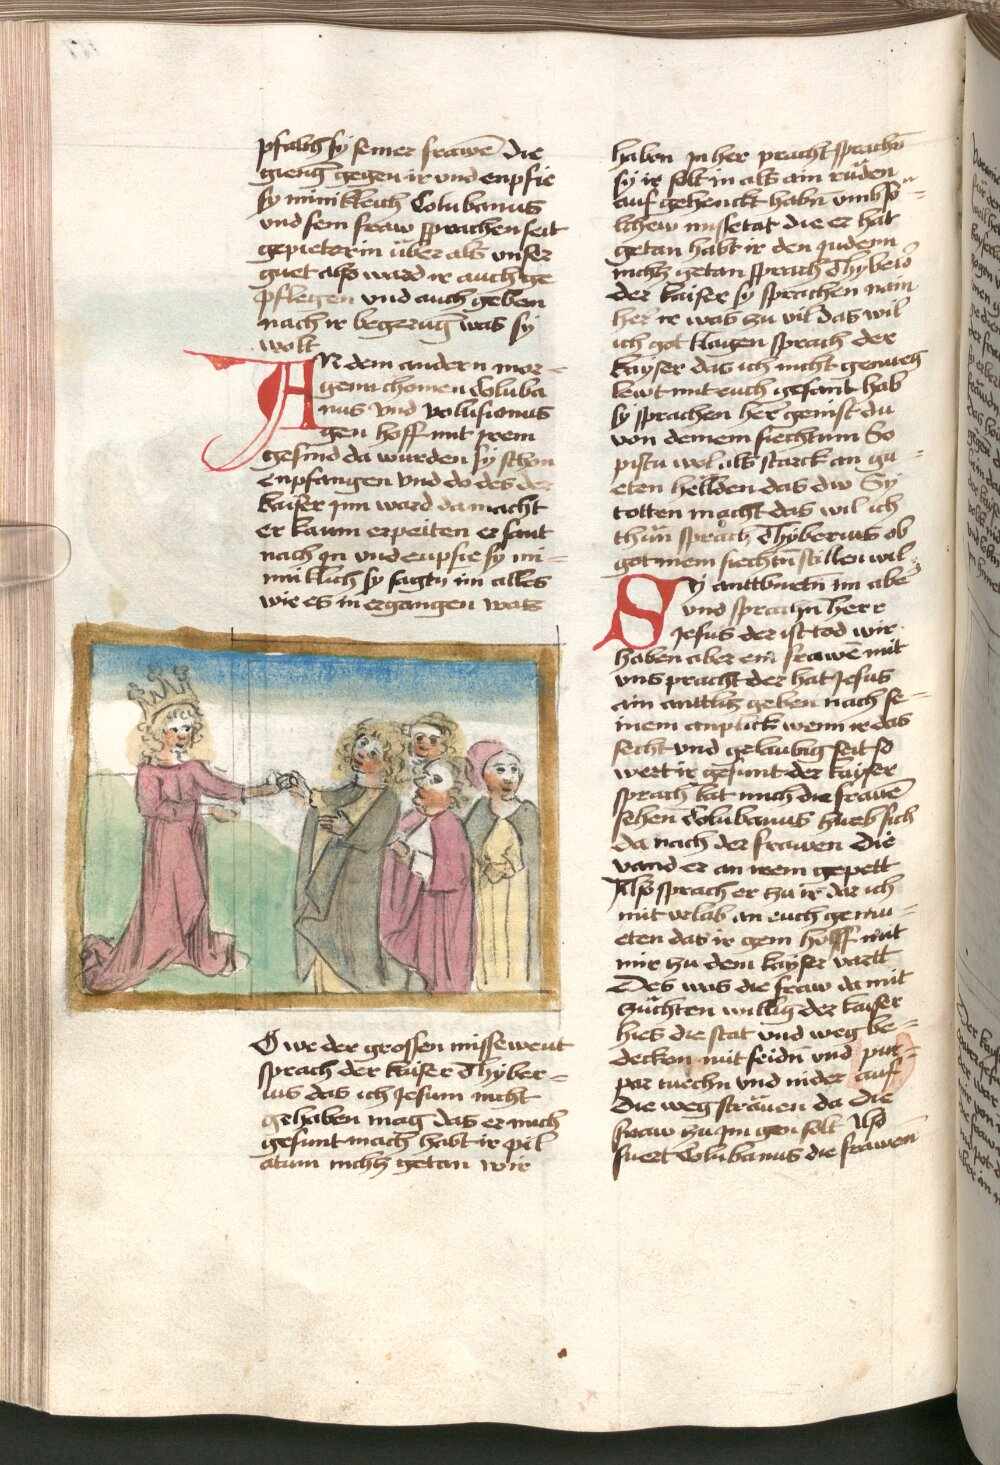 pfalch sy seiner frawē die
gieng gegen ir und enpfie
sy minikleich Columbanus
und sein fraw sprachen seit
gepieterin über als unser
guet also ward ir auch ge
pflegen und auch geben
nach ir begerug was sy
wolt
AN dem andern mor=
genn chomen Coluba
nus vnd volusionus
gen hoff mit jrem
gesind da wurden sy schon
enpfangen vnd do des der
kaiser jnn ward da macht
er kaum erpeiten er sant
nach yn vnd enpfie sy mi=
niklich sy sagtn im alles
wie es in ergangen was
O we der grossen missewent
sprach der kaiser Thyber=
ius das ich Jesum nicht
gehaben mag das er mich
gesunt mach habt ir pil
atum nichtz getan wir
habn jn her pracht sprachn
sy ir solt in als ain rüden
auf gehenckt habn vmb so=
lichew missetat die er hat
getan habt ir den Judenn
nichtz getan sprach Thyberi9
der kaiser sy sprachen nain
her ir was zu vil das wil
ich got klagen sprach der
kayser das ich nicht genueg
lewt mit euch gesant hab
sy sprachen her genist du
von deinem siechtum So
pistu wol als starck an gu=
eten hellden das dw Sy
totten macht das wil ich
thün sprach Thyberius ob
got mein siechtū stillen wil
SY anttburtn im aber
vnd sprachn herr
Jesus der ist tod wir
haben aber ein frawē mit
vns pracht der hat Jesus
ain antlitz geben nach se=
inem anplick wenn ir das
secht vnd gelaubig seit so
wert ir gesunt der kayser
sprach lat mich die frawē
sehen Columbanus hueb sich
da nach der frawen Die
vand er an irem gepett
Also sprach er zu ir dar ich
mit vrlab an euch gemu=
eten das ir gein hoff mit
mir zu dem kayser vartt
Des was die fraw da mit
züchten willig der kaiser
hies die stat vnd weg be=
decken mit seidn vnd pur=
par tuechn vnd nider auf
die weg sträuen da die
fraw zu jm gen solt Also
fuert Columbanus die frawen